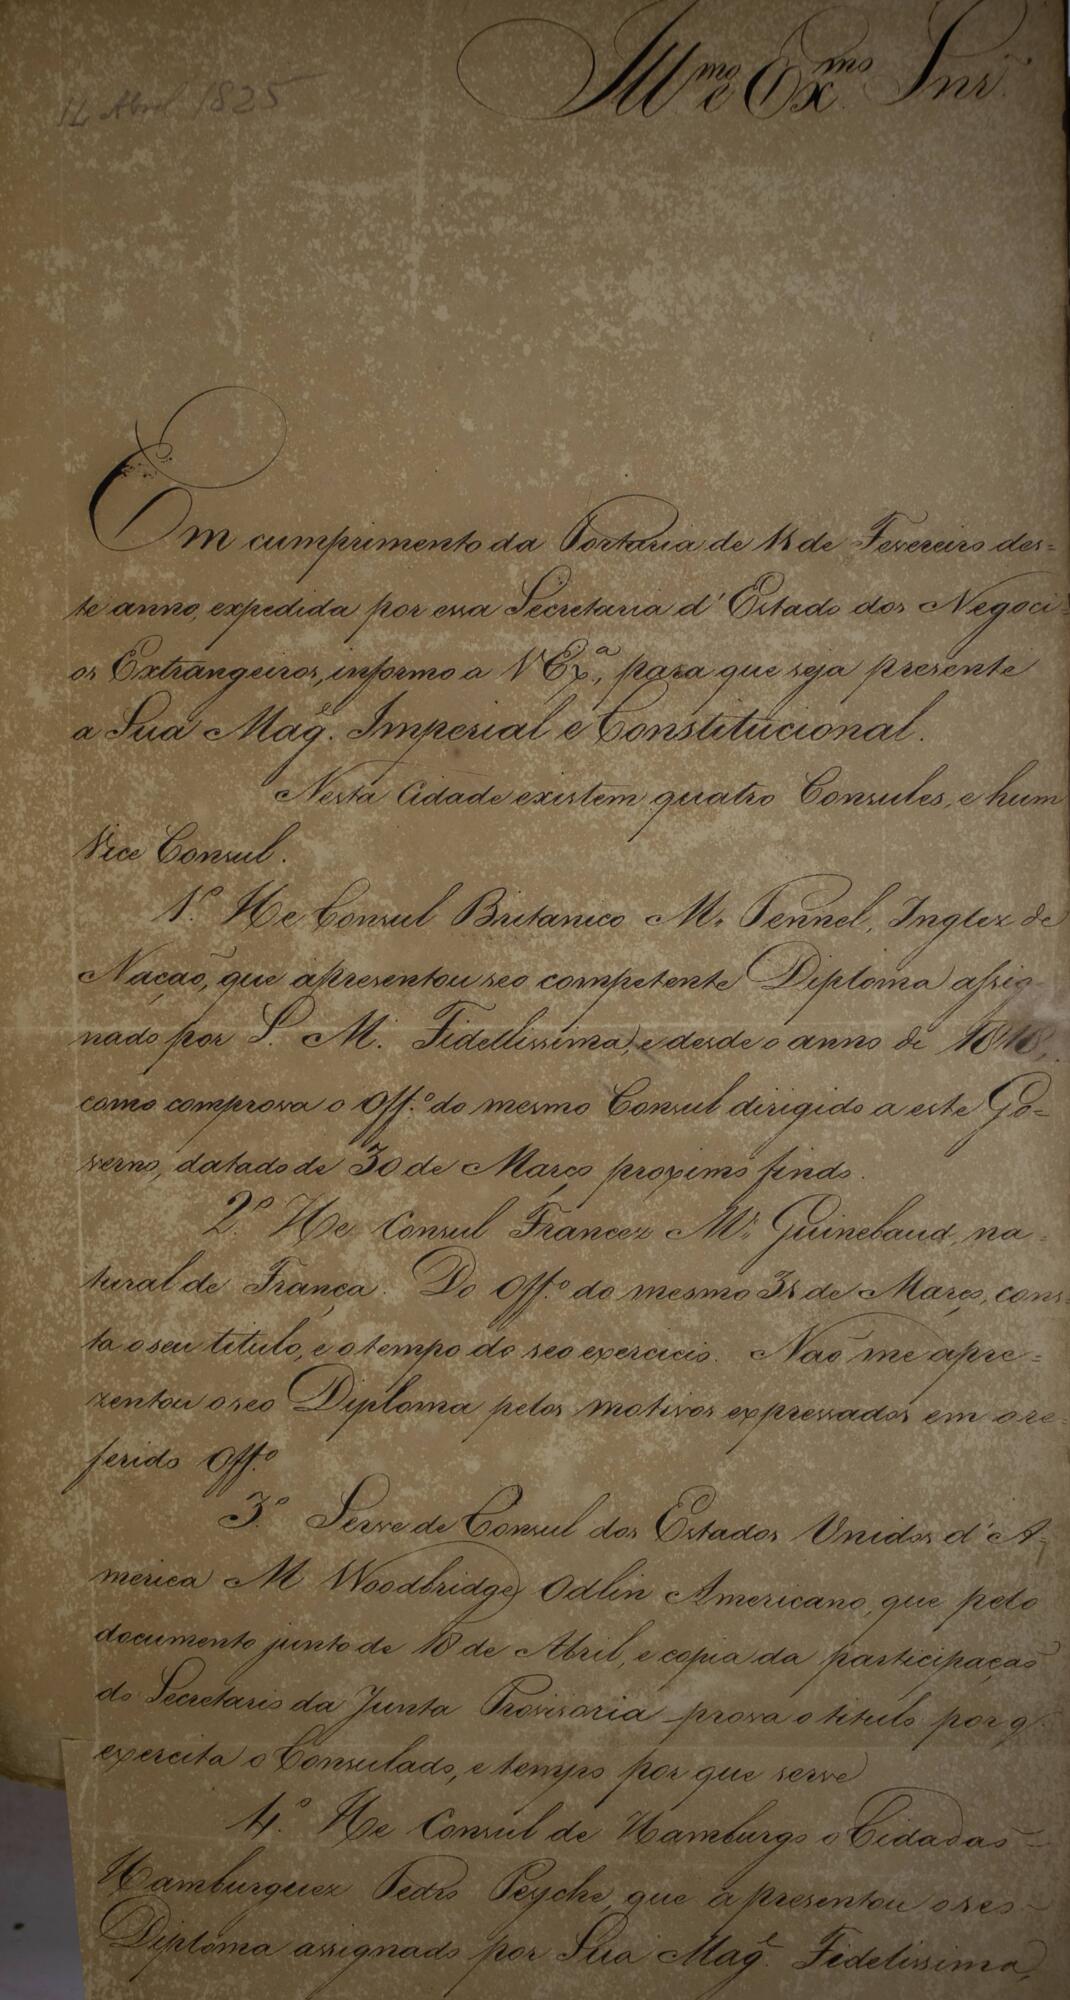 Illmo e Exmo Snr.
Abril 1825
Em cumprimento da Portaria de 14 de Fevereiro des=
te anno, expedida por essa Secretaria d'Estado dos Negoci=
os Extrangeiros, informo a V Exa, para que seja presente
a Sua Mage. Imperial e Constitucional.
Nesta Cidade existem quatro Consules, e hum
Vice Consul.
1º. He Consul Britanico Mr. Pennel, Inglez de
Naçaõ, que apresentou seo competente Diploma assig=
nado por S. M. Fidellissima, e desde o anno de 1818,
como comprova o Offº. do mesmo Consul dirigido a este Go=
verno, datado de 30 de Março proximo findo.
2º. He Consul Francez Mr. Guinebaud, na=
tural de França. Do Offº. do mesmo 31 de Março, cons=
ta o seu titulo, e o tempo do seo exercicio. Naõ me apre=
zentou o seo Diploma pelos motivos expressados em o re=
ferido Offº.
3º. Serve de Consul dos Estados Unidos d'A=
merica M Woodbridge Odlin Americano, que pelo
documento junto de 18 de Abril, e copia da participaçaõ
do Secretario da Junta Provisoria prova o titulo por q
exercita o Consulado, e tempo por que serve
4º. He Consul de Hamburgo o Cidadaõ
Hamburguez Pedro Peyche, que apresentou o seo
Diploma assignado por Sua Mage. Fidelissima,